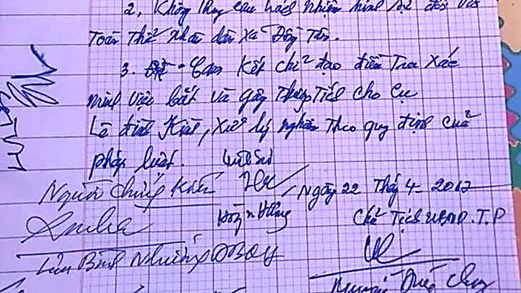 2, Không truy cứu trách nhiệm hình sự đối với
Toàn Thể nhân dân xã Đồng Tâm.
3. Cam Kết chỉ đạo điều Tra Xác
minh việc bắt và gây Thương Tích cho cụ
Lê đình Kình, xử lý nghiêm Theo quy định của
pháp luật.
Luật sư
Người chứng Kiến
Ngày 22 Thág 4 2017
Chủ Tịch UBND.T.P
Lưu Bình Nhưỡng